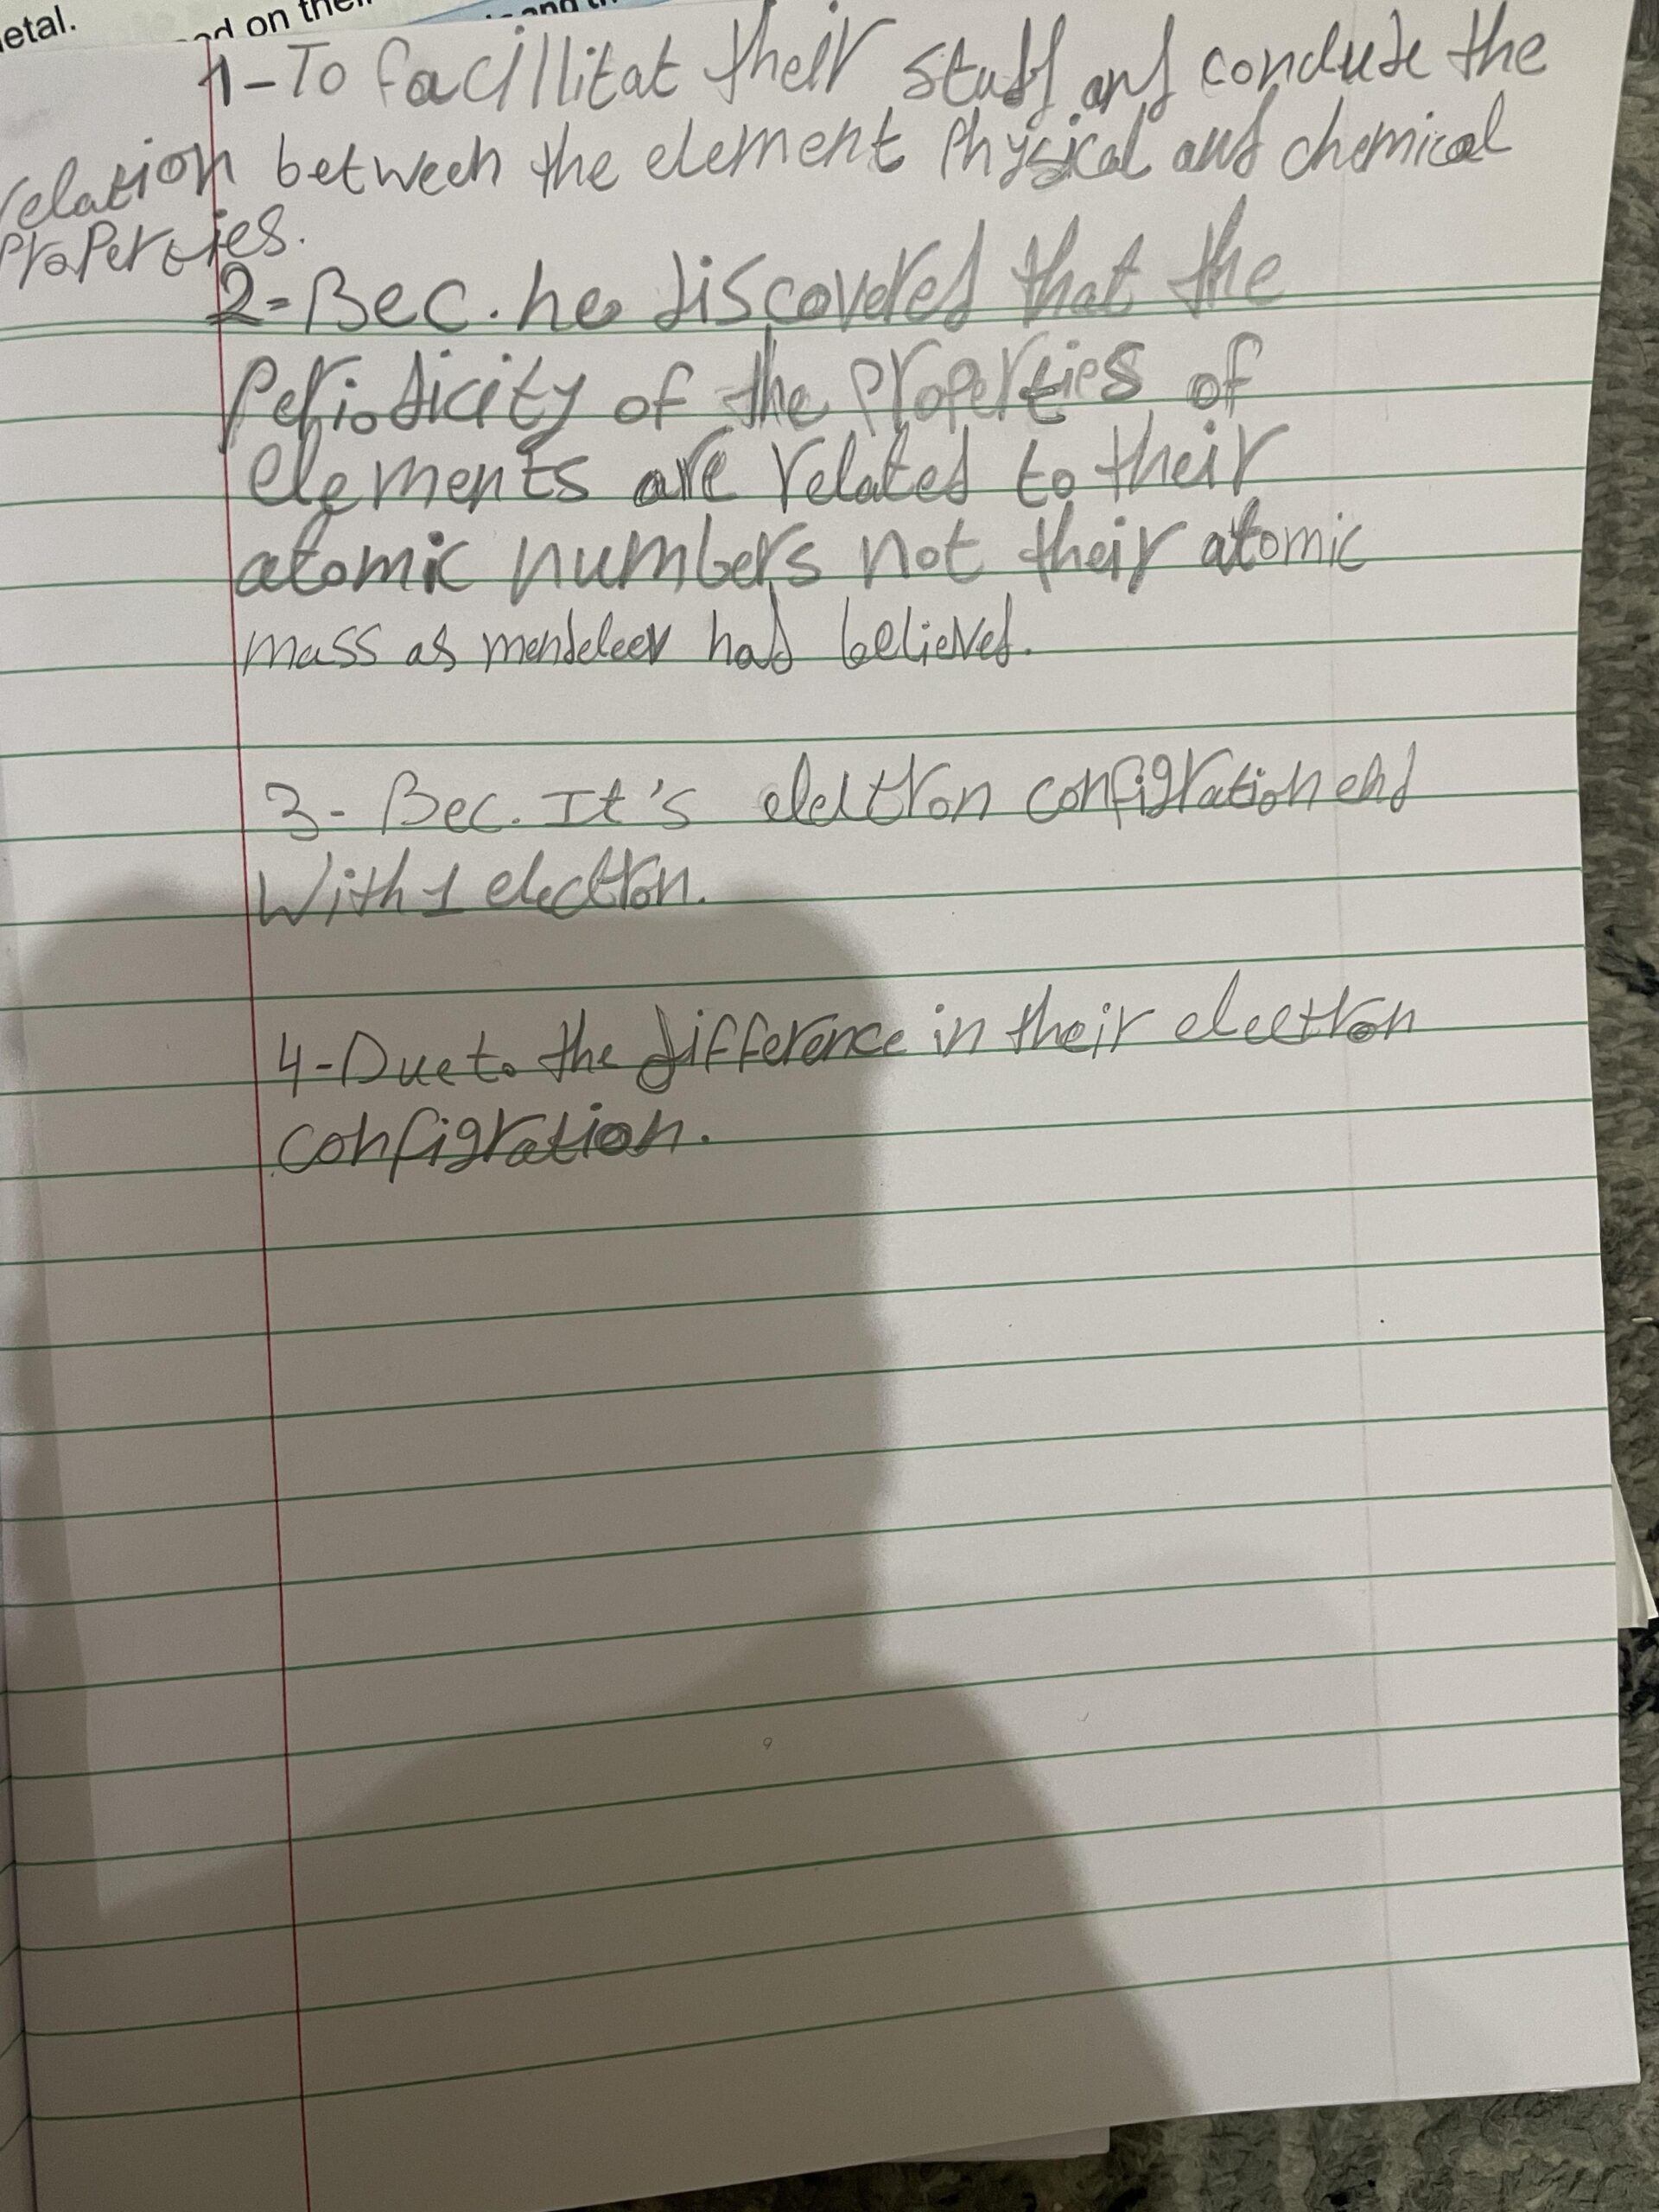 etal.
on their
1-To facillitat their stuff and conclude the
relation between the element Physical and chemical
Properties.
2-Bec. he discovered that the
Periodicity of the properties of
elements are related to their
atomic numbers not their atomic
mass as mendeleev had believed.
3- Bec. It's elctron configration end
With 1 electron.
4-Due to the difference in their electron
configration.